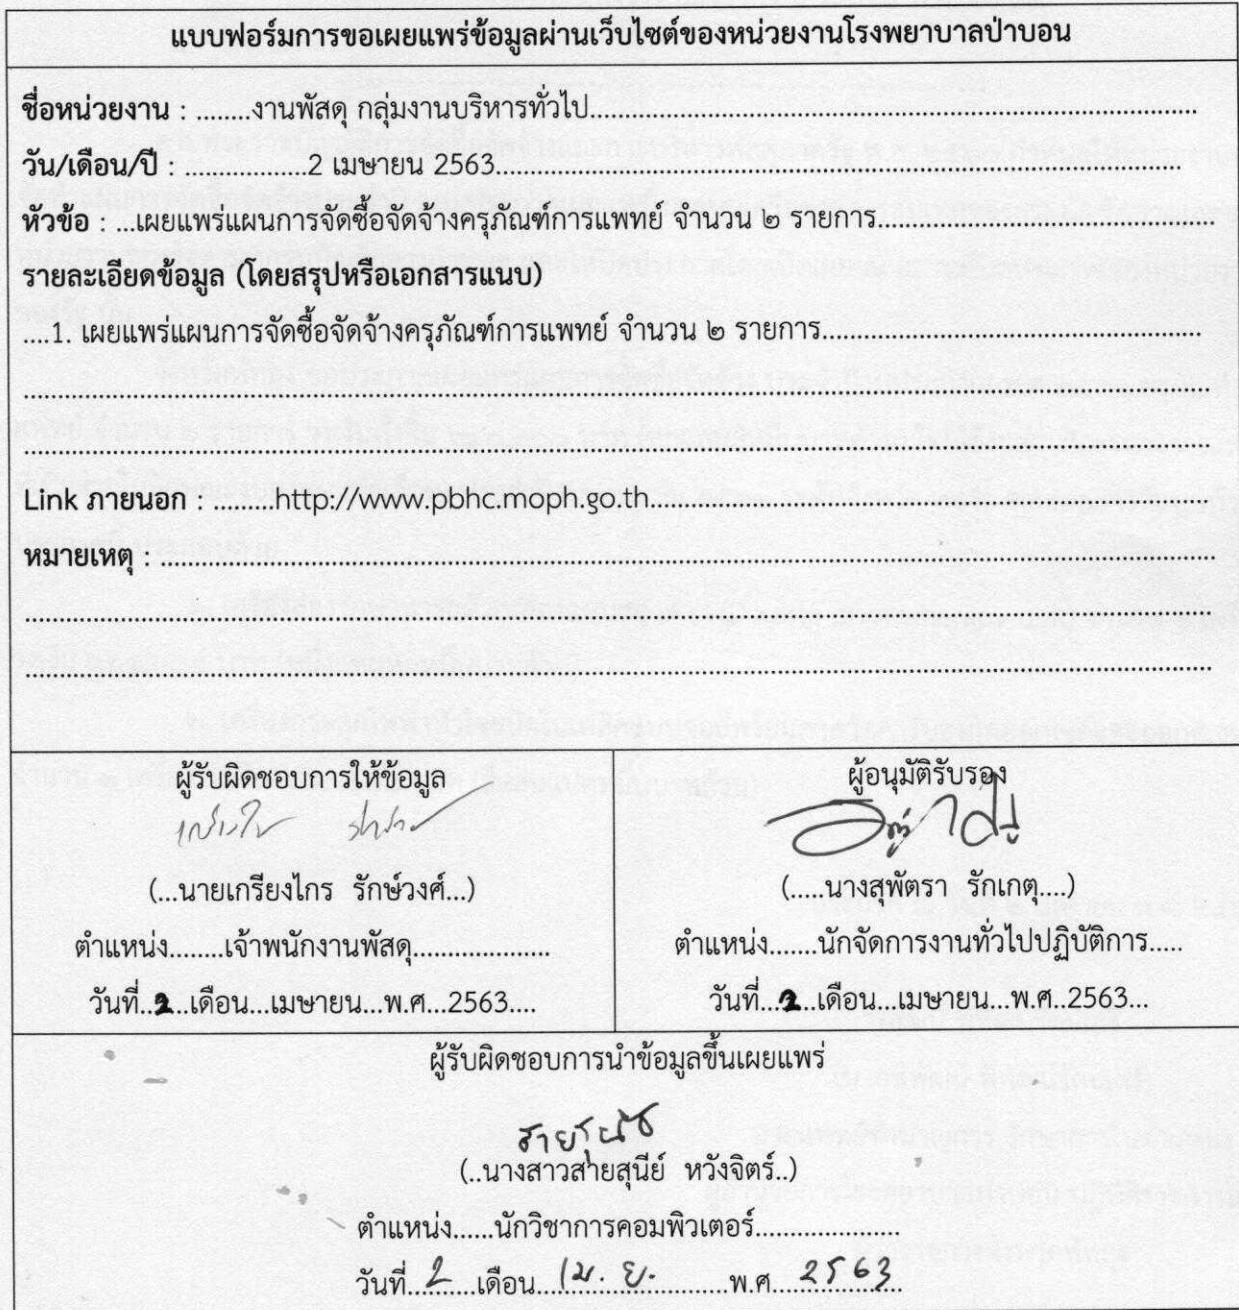 แบบฟอร์มการขอเผยแพร่ข้อมูลผ่านเว็บไซต์ของหน่วยงานโรงพยาบาลป่าบอน
ชื่อหน่วยงาน : ........งานพัสดุ กลุ่มงานบริหารทั่วไป........
วัน/เดือน/ปี : ..................2 เมษายน 2563........
หัวข้อ : ...เผยแพร่แผนการจัดซื้อจัดจ้างครุภัณฑ์การแพทย์ จำนวน ๒ รายการ........
รายละเอียดข้อมูล (โดยสรุปหรือเอกสารแนบ)
....1. เผยแพร่แผนการจัดซื้อจัดจ้างครุภัณฑ์การแพทย์ จำนวน ๒ รายการ........
Link ภายนอก : .........http://www.pbhc.moph.go.th........
หมายเหตุ : ........
ผู้รับผิดชอบการให้ข้อมูล
(...นายเกรียงไกร รักษ์วงศ์...)
ตำแหน่ง........เจ้าพนักงานพัสดุ....................
วันที่..2..เดือน...เมษายน...พ.ศ...2563....
ผู้อนุมัติรับรอง
(.....นางสุพัตรา รักเกตุ....)
ตำแหน่ง.......นักจัดการงานทั่วไปปฏิบัติการ.....
วันที่...2..เดือน...เมษายน...พ.ศ..2563...
ผู้รับผิดชอบการนำข้อมูลขึ้นเผยแพร่
สายสุนีย์
(..นางสาวสายสุนีย์ หวังจิตร์..)
ตำแหน่ง......นักวิชาการคอมพิวเตอร์.....................
วันที่...2...เดือน...เม.ย. ...พ.ศ...2563...